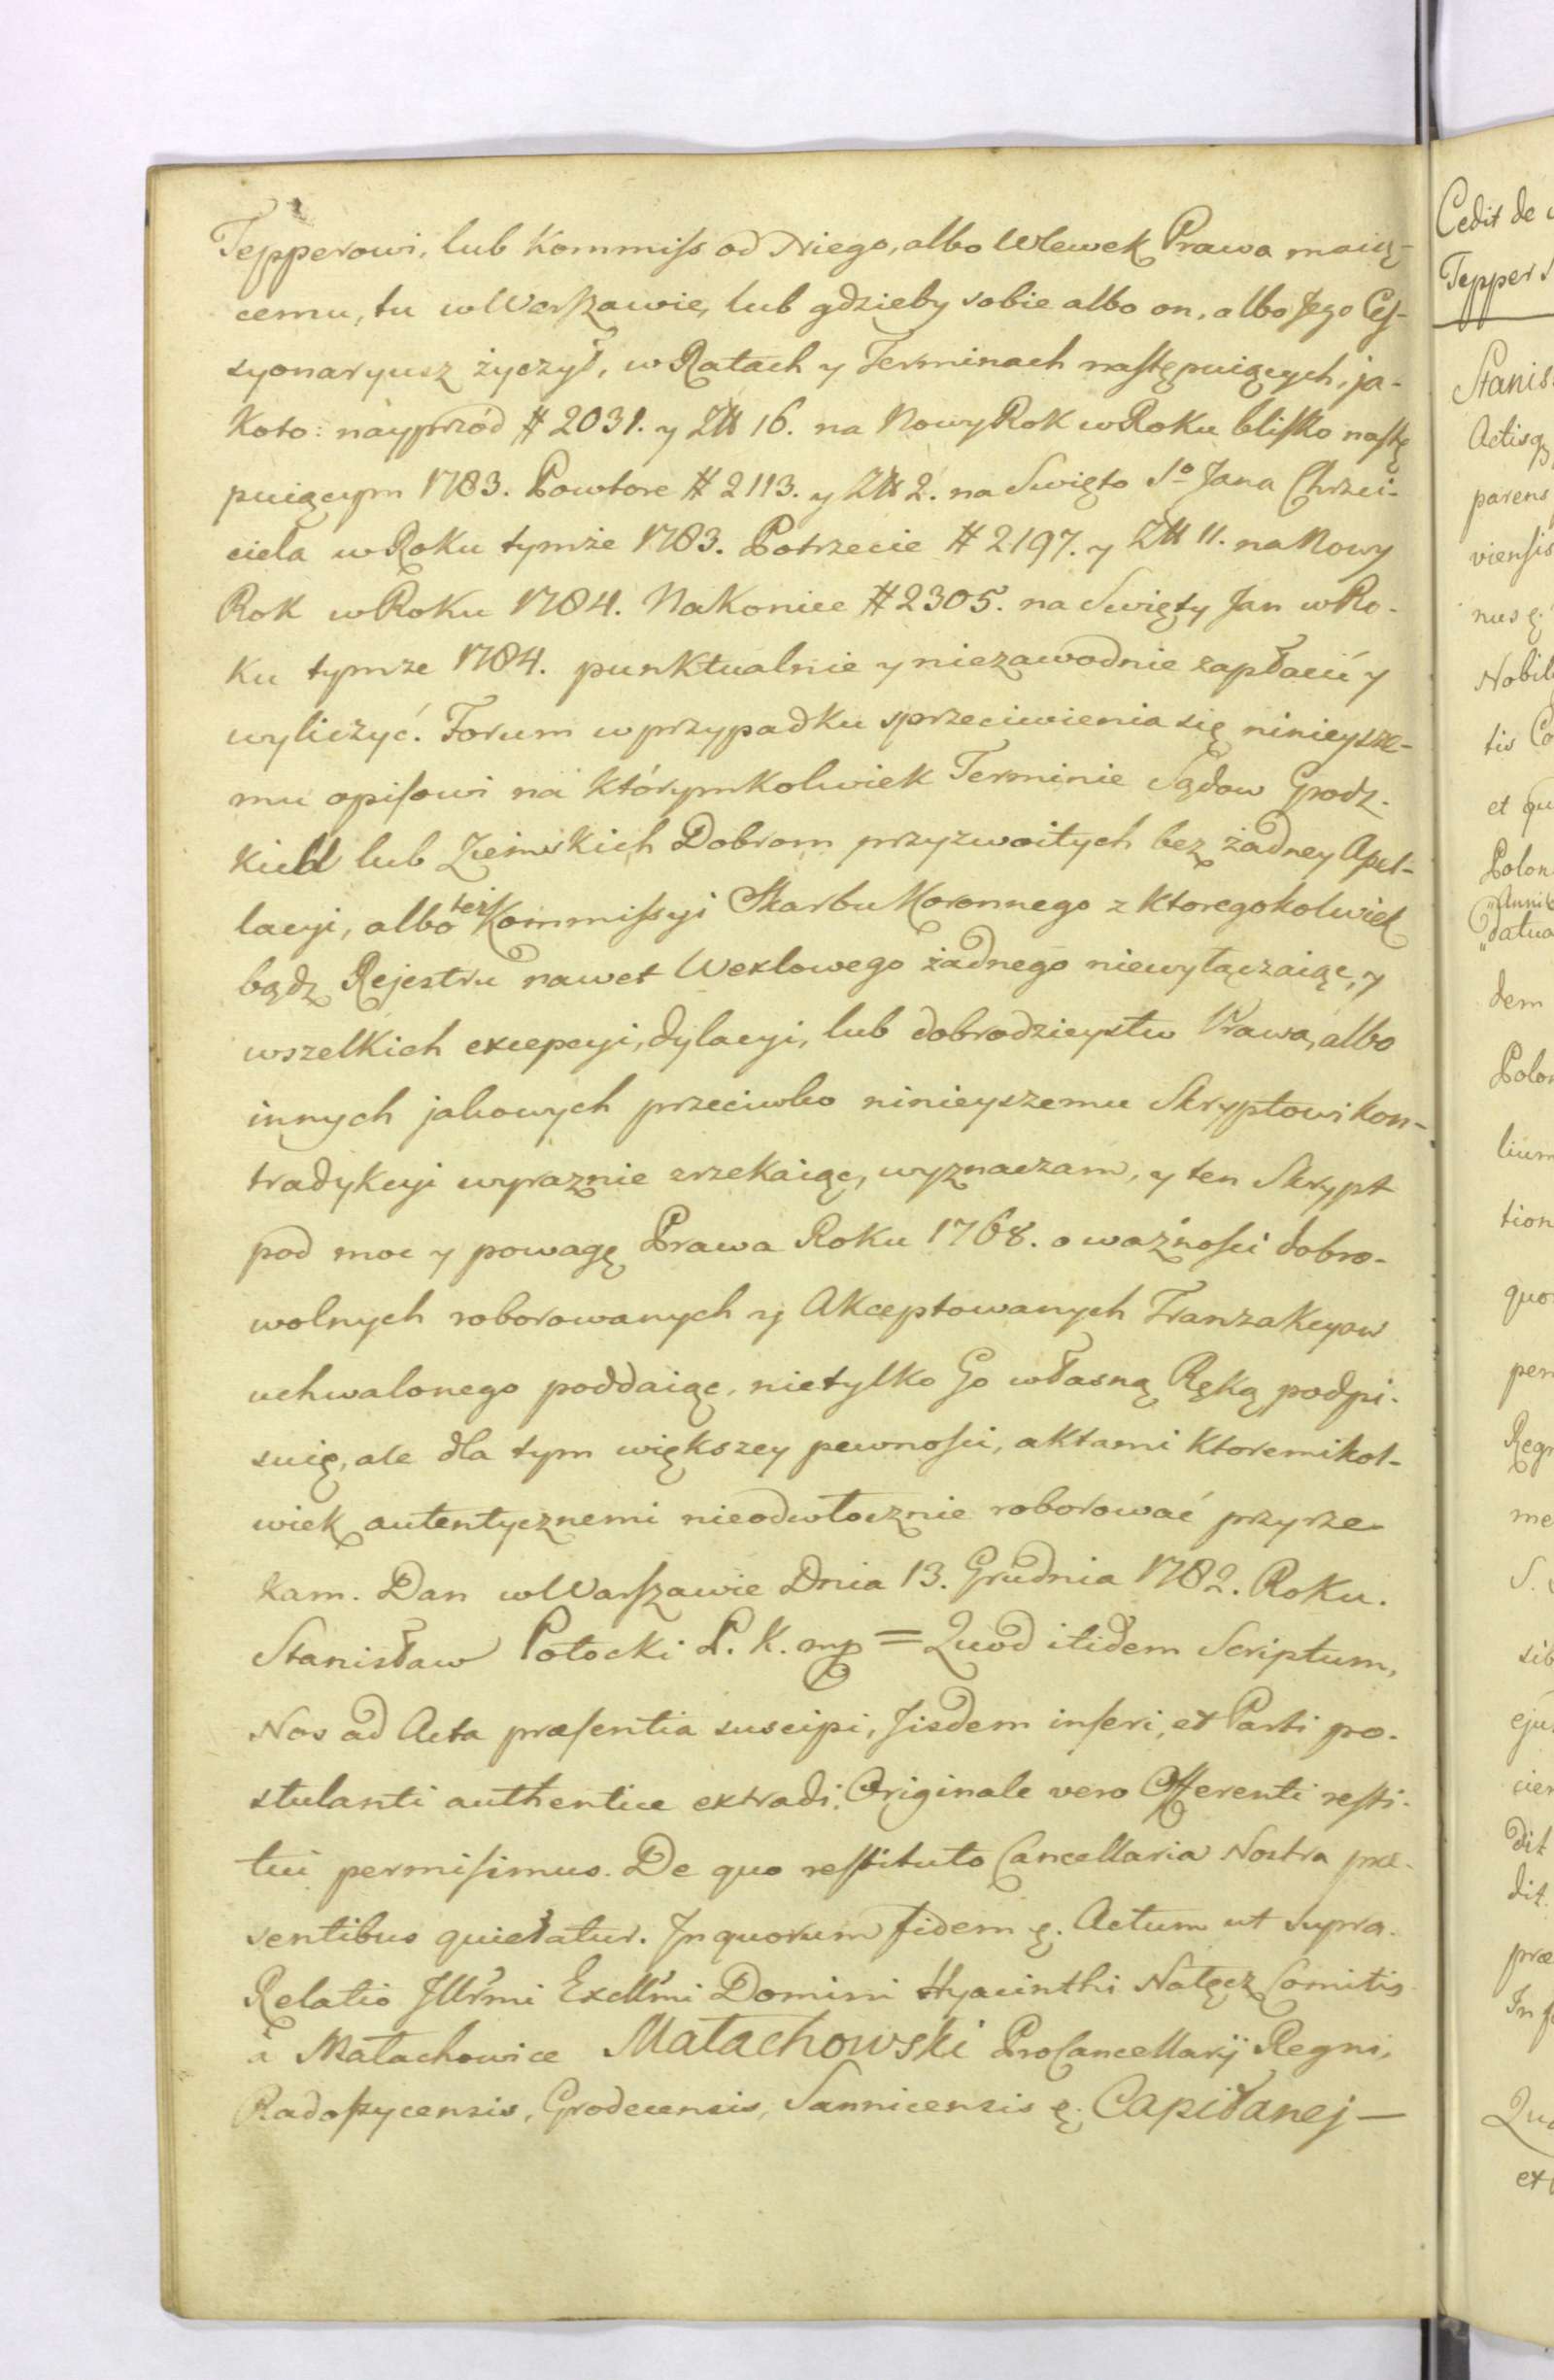 Tepperowi, lub Kommiss od Niego, albo Wlewek Prawa maią-
cemu, tu w Warszawie, lub gdzieby sobie albo on, albo Jego Ces-
syonaryusz życzył, w Ratach y Terminach następuiących, ja-
koto: nayprzód # 2031. y Złł 16. na Nowy Rok w Roku blisko nastę
puiącym 1783. Powtore # 2113. y Złł 2. na Swięto So Jana Chrzci-
ciela w Roku tymże 1783. Potrzecie # 2197. y Złł 11. na Nowy
Rok w Roku 1784. Nakoniec # 2305. na Swięty Jan w Ro-
ku tymze 1784. punktualnie y niezawodnie zapłacić y
wyliczyć. Forum w przypadku sprzeciwienia się ninieysze-
mu opisowi na którymkolwiek Terminie Sądow Grodz-
kich lub Ziemskich Dobrom przyzwoitych bez żadney Apel-
lacyi, albo też Kommissyi Skarbu Koronnego z ktoregokolwiek
bądz Rejestru nawet Wexlowego żadnego niewyłączaiąc, y
wszelkich excepcyi, dylacyi, lub dobrodzieystw Prawa, albo
innych jakowych przeciwko ninieyszemu Skryptowi kon-
tradykcyi wyraznie zrzekaiąc, wyznaczam, y ten Skrypt
pod moc y powagę Prawa Roku 1768. o ważności dobro-
wolnych roborowanych y Akceptowanych Tranzakcyow
uchwalonego poddaiąc, nietylko Go własną Ręką podpi-
suię, ale dla tym większey pewności, aktami ktoremikol-
wiek autentycznemi nieodwłocznie roborować przyrze-
kam. Dan w Warszawie Dnia 13. Grudnia 1782. Roku.
Stanisław Potocki P. K. mp = Quod itidem Scriptum,
Nos ad Acta præsentia suscipi, Jisdem inseri, et Parti po-
stulanti authentice extradi, Originale vero Offerenti resti-
tui permisimus. De quo restituto Cancellaria Nostra præ-
sentibus quietatur. In quorum fidem ę. Actum ut supra.
Relatio Jllrmi Excllmi Domini Hyacinthi Nałęcz Comitis
à Małachowice Małachowski ProCancellarij Regni,
Radoszycensis, Grodecensis, Sannicensis ę. Capitanej —
Cedit de
Tepper
Stanis
Actisq
parens
viensis
nus ę.
Nobil
tis Co
et qu
Polon
datua
dem
Polon
lium
tion
quo
per
Reg
me
S.
sib
eju
cien
dit
dit
præ
In f
Quo
ex